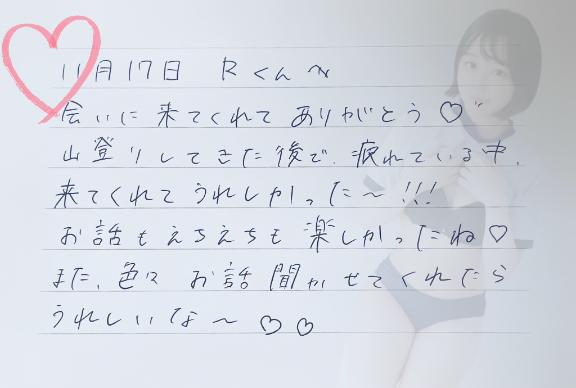 11月17日 Rくんへ
会いに来てくれてありがとう♡
山登りしてきた後で、疲れている中、
来てくれてうれしかった〜!!!
お話もえちえちも楽しかったね♡
また、色々お話聞かせてくれたら
うれしいな〜♡♡